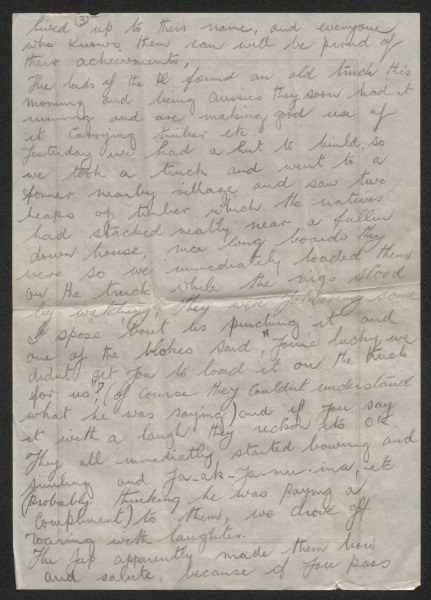 (3)
lived up to their name, and everyone
who knows them can will be proud of
their acheivments,
The lads of the Pl found an old truck this
morning and being Aussies they soon had it
running and are making good use of
it carrying timber etc
Yesterday we had a hut to build, so
we took a truck and went to a
former nearby village and saw two
heaps of timber which the natives
had stacked neatly near a fallen
down house, nice long boards they
were so we immediately loaded them
on the truck while the nigs stood
by watching, they were jabbering some
I spose bout us pinching it and
one of the blokes said, "youre lucky we
didnt get you to load it on the truck
for us", (of course they couldnt understand
what he was saying) and if you say
it with a laugh they reckon its O'K
They all immediatly started bowing and
smiling and ja-ak-ja-nu-ina, etc
(probably thinking he was paying a
compliment) to them, we drove off
roaring with laughter.
The Jap apparently made them bow
and salute, because if you pass